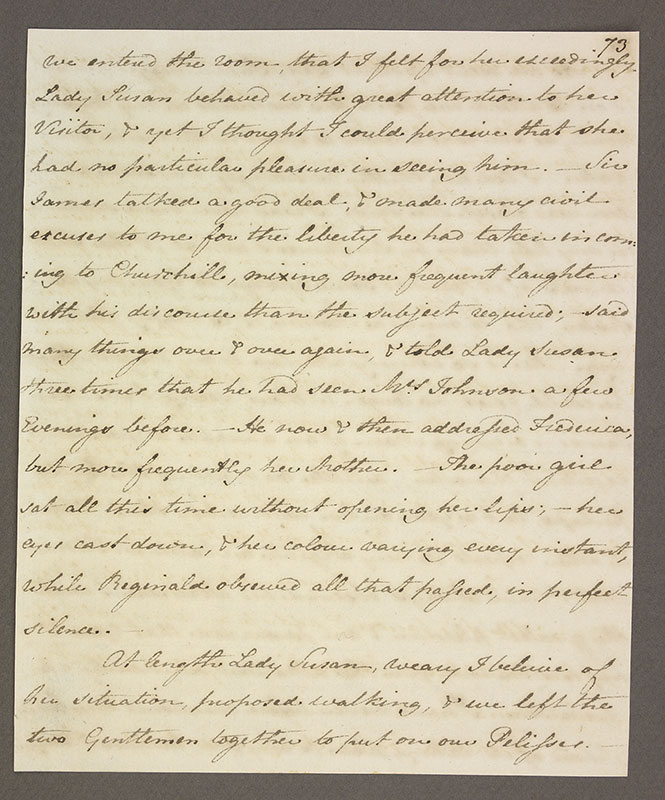 73
we entered the room, that I felt for her exceedingly.
Lady Susan behaved with great attention to her
Visitor, & yet I thought I could perceive that she
had no particular pleasure in seeing him. — Sir
James talked a good deal, & made many civil
excuses to me for the liberty he had taken in com:
:ing to Churchill, mixing more frequent laughter
with his discourse than the subject required; — said
many things over & over again, & told Lady Susan
three times that he had seen Mrs Johnson a few
Evenings before. — He now & then addressed Frederica,
but more frequently her Mother. — The poor girl
sat all this time without opening her lips; — her
eyes cast down, & her colour varying every instant,
while Reginald observed all that passed, in perfect
silence. —
At length Lady Susan, weary I beleive of
her situation, proposed walking, & we left the
two Gentlemen together to put on our Pelisses. —